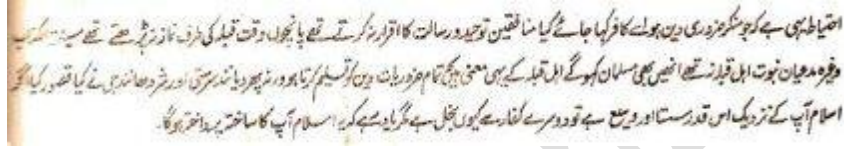 احتیاط یہی ہے کہ جو منکر ضروری دین ہو اسے کافر کہا جائے کیا منافقین توحید و رسالت کا اقرار نہ کرتے تھے پانچوں وقت قبلہ کی طرف نماز نہ پڑھتے تھے مسیلمہ کذاب
وغیرہ مدعیان نبوت اہل قبلہ نہ تھے انہیں بھی مسلمان کہو گے اہل قبلہ کے یہی معنی ہیں کہ تمام ضروریات دین کو تسلیم کرتا ہو ورنہ پھر دیانند سرستی اور شردھانند جی نے کیا قصور کیا اگر
اسلام آپ کے نزدیک اس قدر سستا اور وسیع ہے تو دوسرے کفار سے کیوں بخل ہے مگر یاد رہے کہ یہ اسلام آپ کا ساختہ پرداختہ ہوگا۔